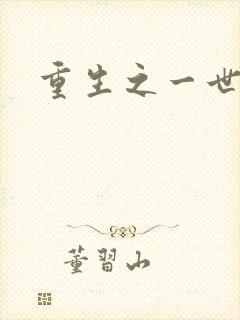 重生之一世
董習山